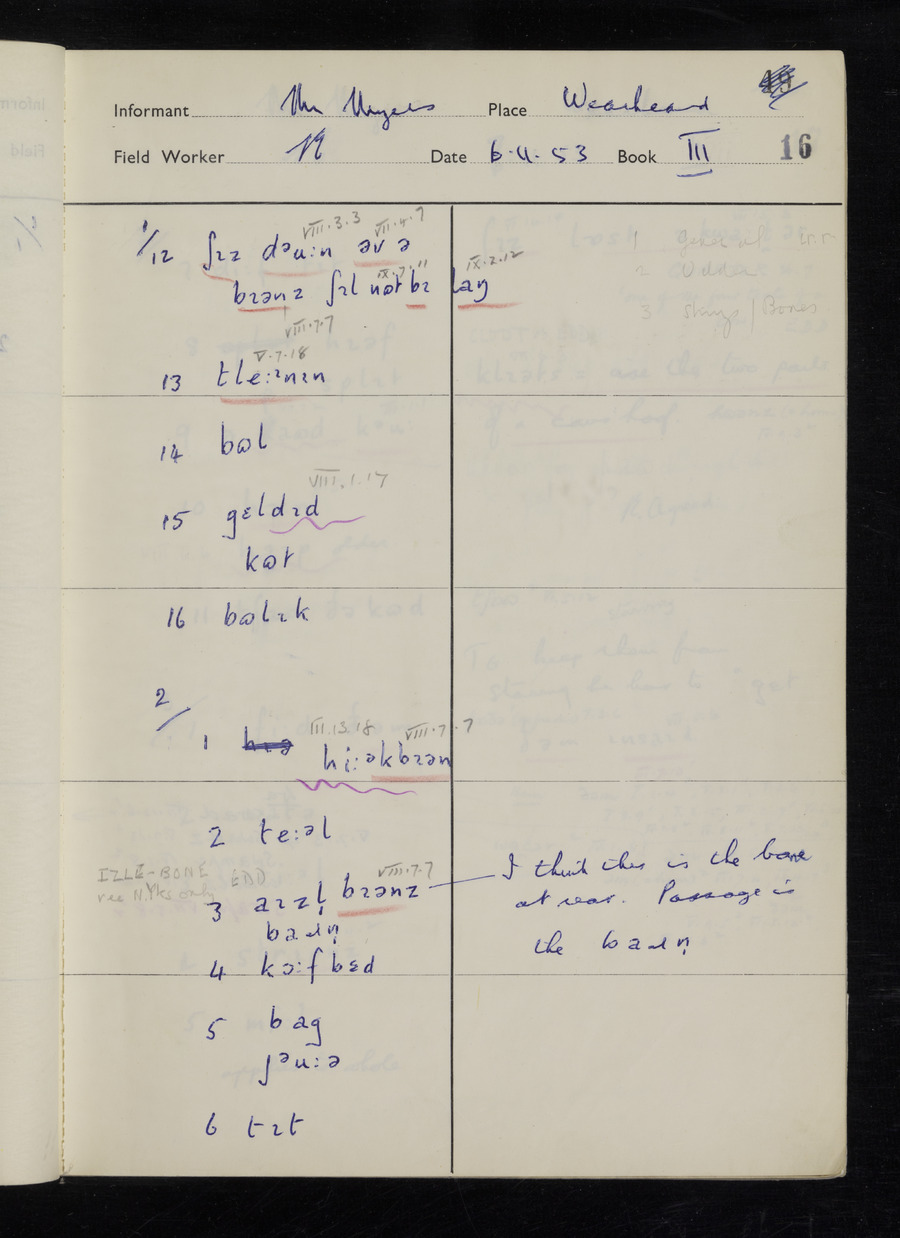 Informant Mr Myers Place Wearhead
Field Worker Date 6.11.53 Book III 16
VIII.3.3 VII.4.7
1/12 ʃɪz dəuːn əv ə
IX.7.11 IX.2.12
bɪənz ʃɪl nɒt bɪ laŋ
VIII.7.7
V.7.18
13 tleːɪnɪn
14 bɷl
VIII.1.17
15 gɛldɪd
kɷt
16 bɷlɪk
2/
III.13.18 VIII.7.7
1 hiːəkbɪən
2 teːəl
IZLE-BONE EDD VIII.7.7
rec N.Yks only
3 aɪzl̩ bɪənz I think this is the bone
at rear. Passage is
baɹn̩ the baɹn̩
4 kɔːf bɛd
5 bag
ʃəuːə
6 tɪt
1 general
2 Udder
3 slings/Bones